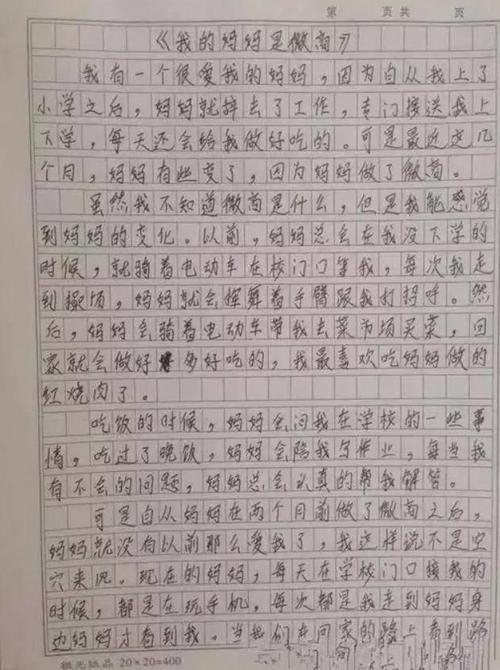 第 页 共 页
《我的妈妈是微商》
我有一个很爱我的妈妈，因为自从我上了
小学之后，妈妈就辞去了工作，专门接送我上
下学，每天还会给我做好吃的。可是最近这几
个月，妈妈有些变了，因为妈妈做了微商。
虽然我不知道微商是什么，但是我能感觉
到妈妈的变化。以前，妈妈总会在我没下学的
时候，就骑着电动车在校门口等我，每次我走
到操场，妈妈就会挥舞着手臂跟我打招呼。然
后，妈妈会骑着电动车带我去菜市场买菜，回
家就会做好多好吃的，我最喜欢吃妈妈做的
红烧肉了。
吃饭的时候，妈妈会问我在学校的一些事
情，吃过了晚饭，妈妈会陪我写作业，每当我
有不会的问题，妈妈总会认真的帮我解答。
可是自从妈妈在两个月前做了微商之后，
妈妈就没有以前那么爱我了，我这样说不是空
穴来风。现在的妈妈，每天在学校门口接我的
时候，都是在玩手机，每次都是我走到妈妈身
边妈妈才看到我。当我们在回家的路上看到路
20×20=400